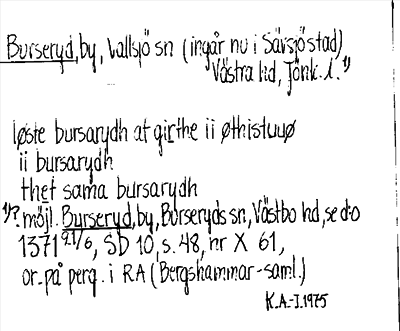 Burseryd, by, Vallsjö sn (ingår nu i Sävsjö stad)
Västra hd, Jönk. l. 1)
løste bursarydh at girthe ii øthistuuø
ii bursarydh
thet sama bursarydh
1)? möjl. Burseryd, by, Burseryds sn, Västbo hd, se d:o
1371 21/6, SD 10, s. 48, nr X 61,
or. på perg. i RA (Bergshammar-saml.)
K.A.-J. 1975